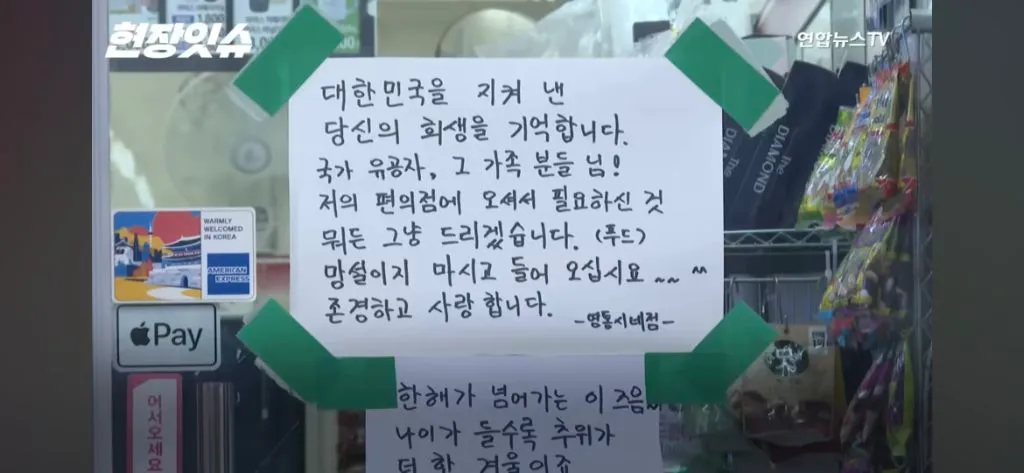 현장잇슈
연합뉴스TV
대한민국을 지켜 낸
당신의 희생을 기억합니다.
국가 유공자, 그 가족 분들 님!
저의 편의점에 오셔서 필요하신 것
뭐든 그냥 드리겠습니다. (푸드)
망설이지 마시고 들어 오십시요~~ ^^
존경하고 사랑합니다.
-영통시네점-
한해가 넘어가는 이 즈음~
나이가 들수록 추위가
더 한 겨울이죠
WARMLY
WELCOMED
IN KOREA
AMERICAN
EXPRESS
Pay
어서오세요
the
DIAMOND